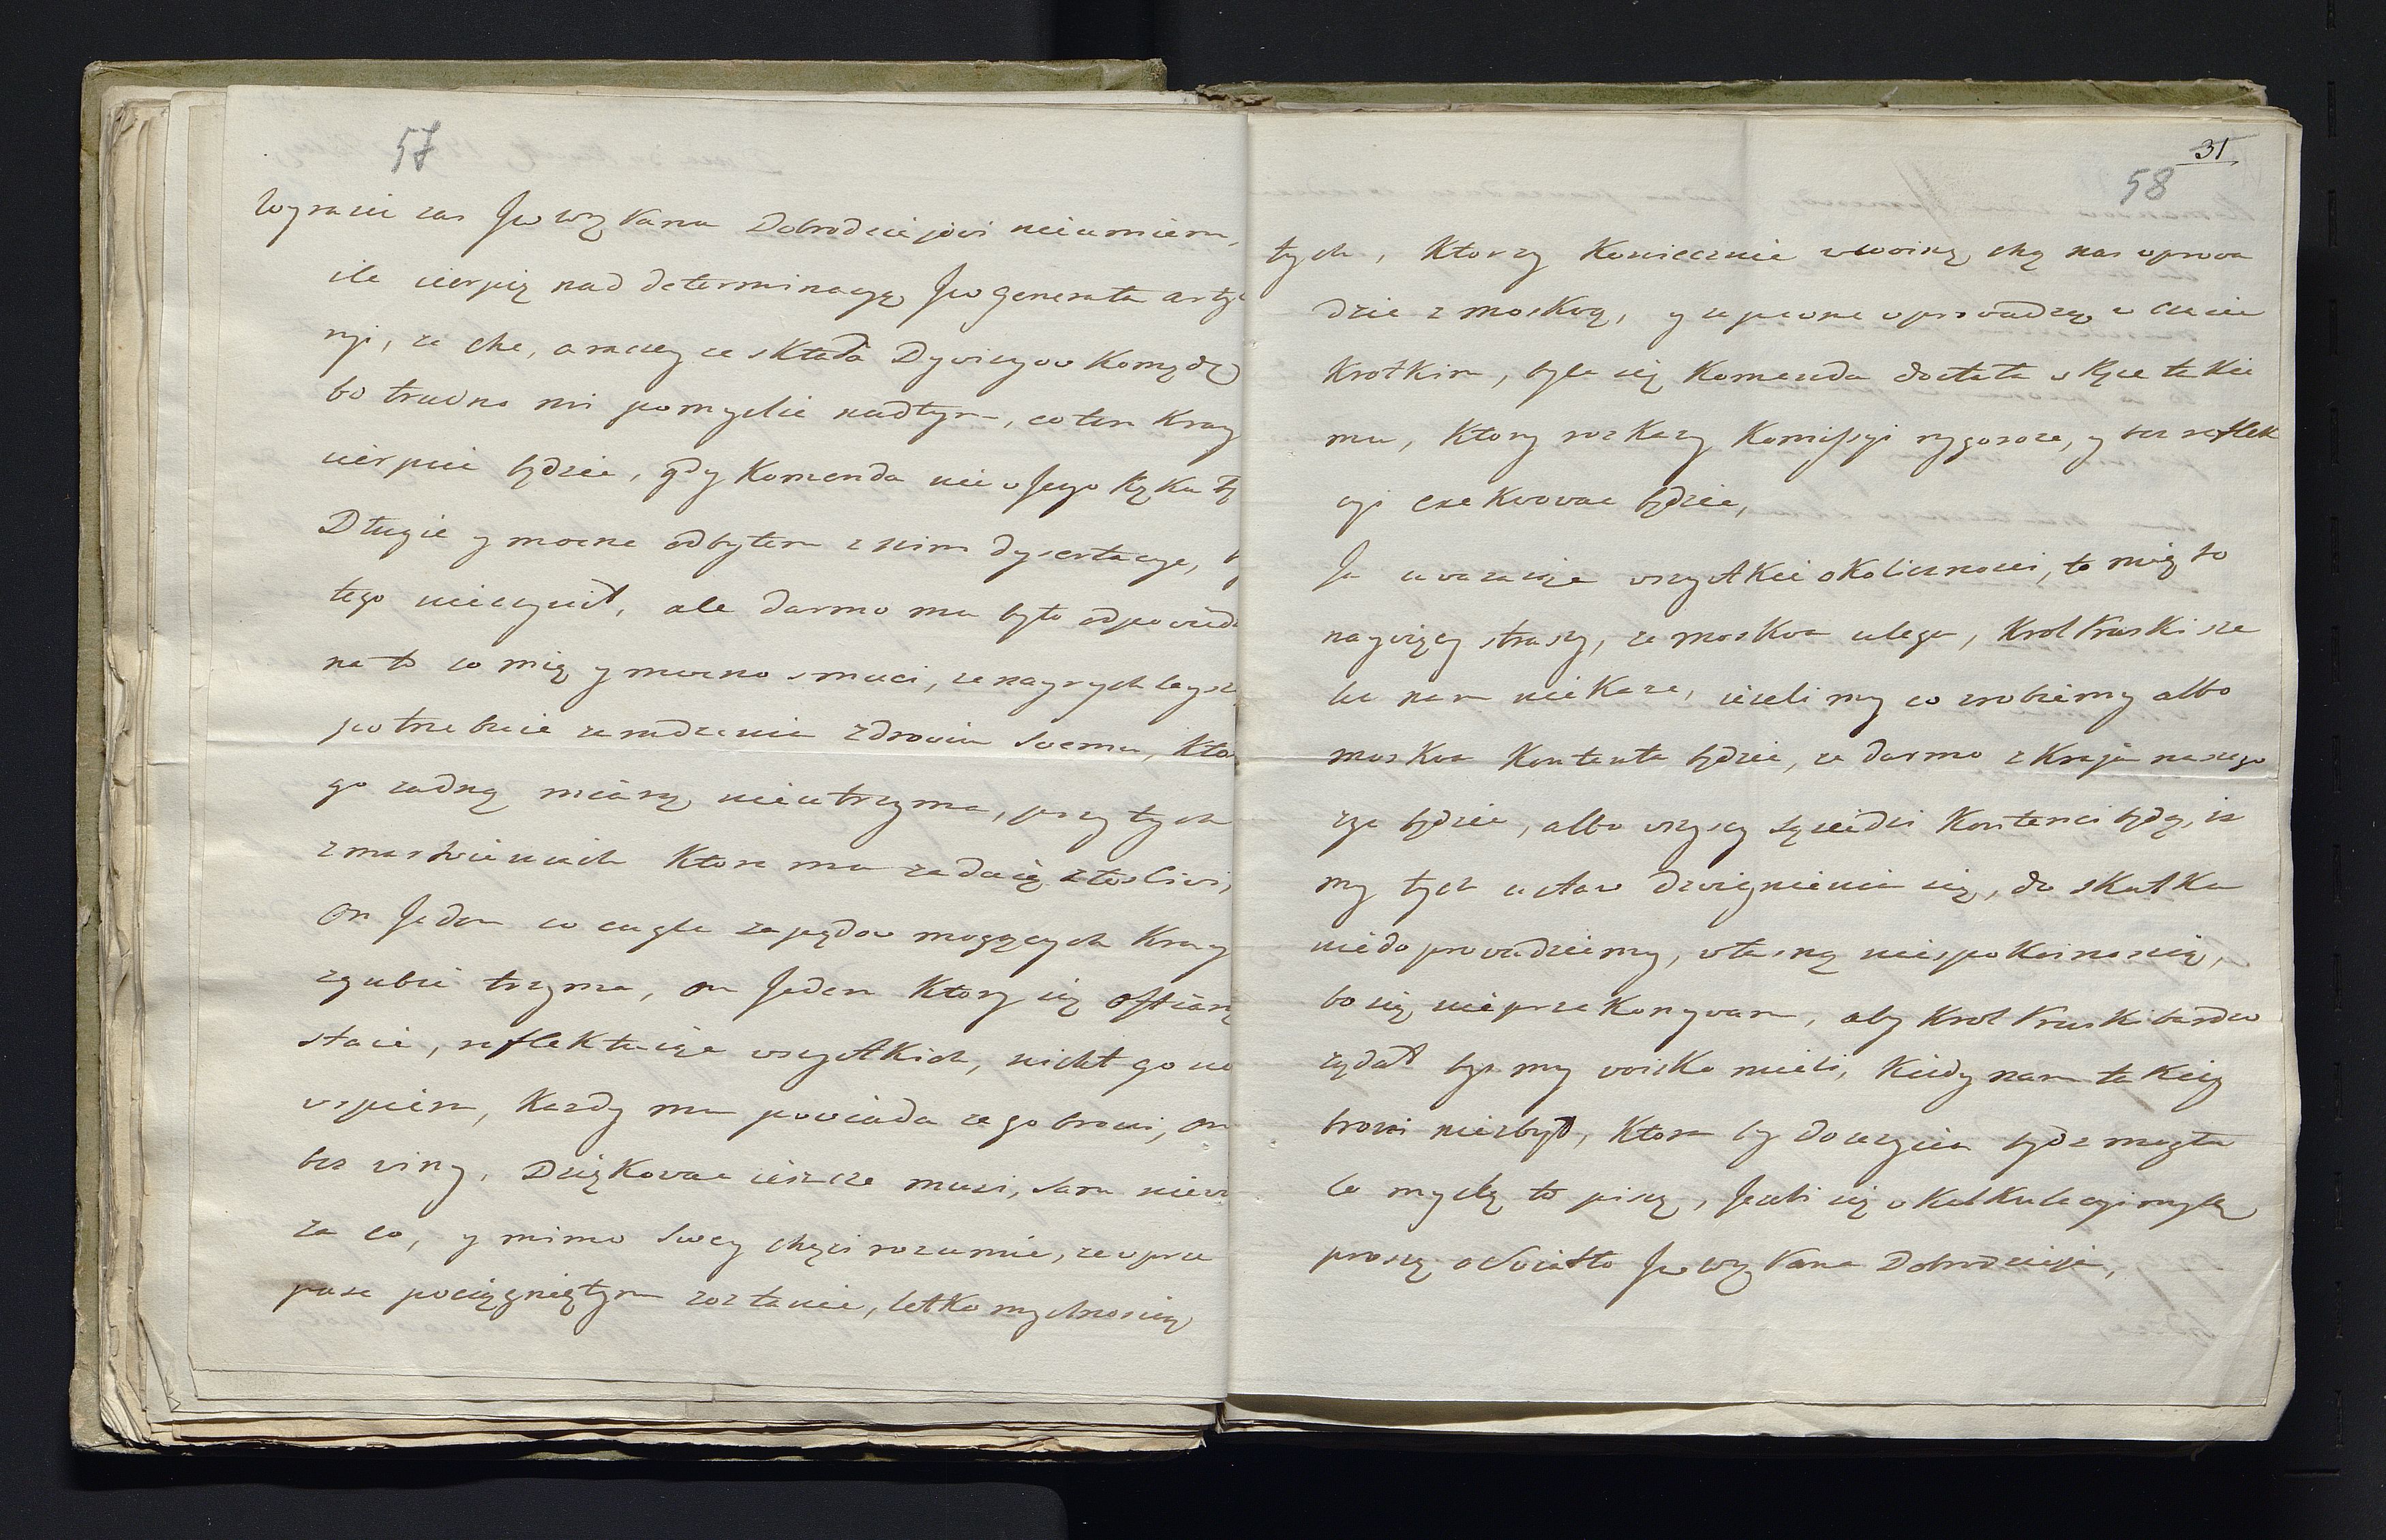 57
Wyrazić zas Jw WJ Panu Dobrodziejowi nieumiem,
ile cierpię nad determinacyę Jw Generała arty
ryi, ze chce, a raczey ze składa Dywizyow Komędę
bo trudno mi pomyslic nadtym, co ten Kray
cierpiec będzie, gdy Komenda nie w Jego Ręku bę
Długie y mocne odbyłem z nim dysertacye,
tego nieczynił, ale darmo mu było odpowied
na to co mię y mocno smuci, ze nayrychleysz
potrzebuie zaradzenia zdrowiu swemu, kto
go zadną miarą nieutrzyma, przy tych
zmartwieniach Ktore mu zadaią złosliwi,
On Jeden co cugle zapędow mogących Kray
zgubić trzyma, on Jeden Ktory się offiarą
staie, reflektuiąc wszystkich, nicht go nie
wspiera, Kazdy mu powiada ze go broni, on
bez winy, Dziękowac ieszcze musi, sam niewi
za co, y mimo swey chęci rozumie, ze w prze
pasc pociągniętym zoztanie, letkomyslnoscią
31
58
tych, Ktorzy Koniecznie w woinę chcą nas wprowa
dzic z moskwą, y zapewne wprowadzą w czasie
Krotkim, byle się Komenda dostała w Ręce takie
mu, Ktory rozkazy Komissyi rygoroze, y bez reflek
cyi exekwowac będzie,
Ja uwazaiąc wszystkie okolicznosci, to mię to
naywięcy straszy, ze moskwa ulega, Krol Pruski sza
bu nam niekaze, iezeli my co zrobiemy albo
moskwa Kontenta będzie, ze darmo z Kraju naszego
zyc będzie, albo wszyscy sąsiedzi Kontenci będą, iz
my tych ustaw dzwignienia się, do skutku
niedoprowadziemy, własną niespokoinoscią,
bo się nieprzekonywam, aby Krol Pruski bardzo
ządał bysmy woisko mieli, Kiedy nam takiey
broni niezbył, Ktora by do uzycia bydz mogła
Co myslę to piszę, Jezeli się w Kalkulacyi mylę
proszę o Swiatło Jw WJ Pana Dobrodzieja,